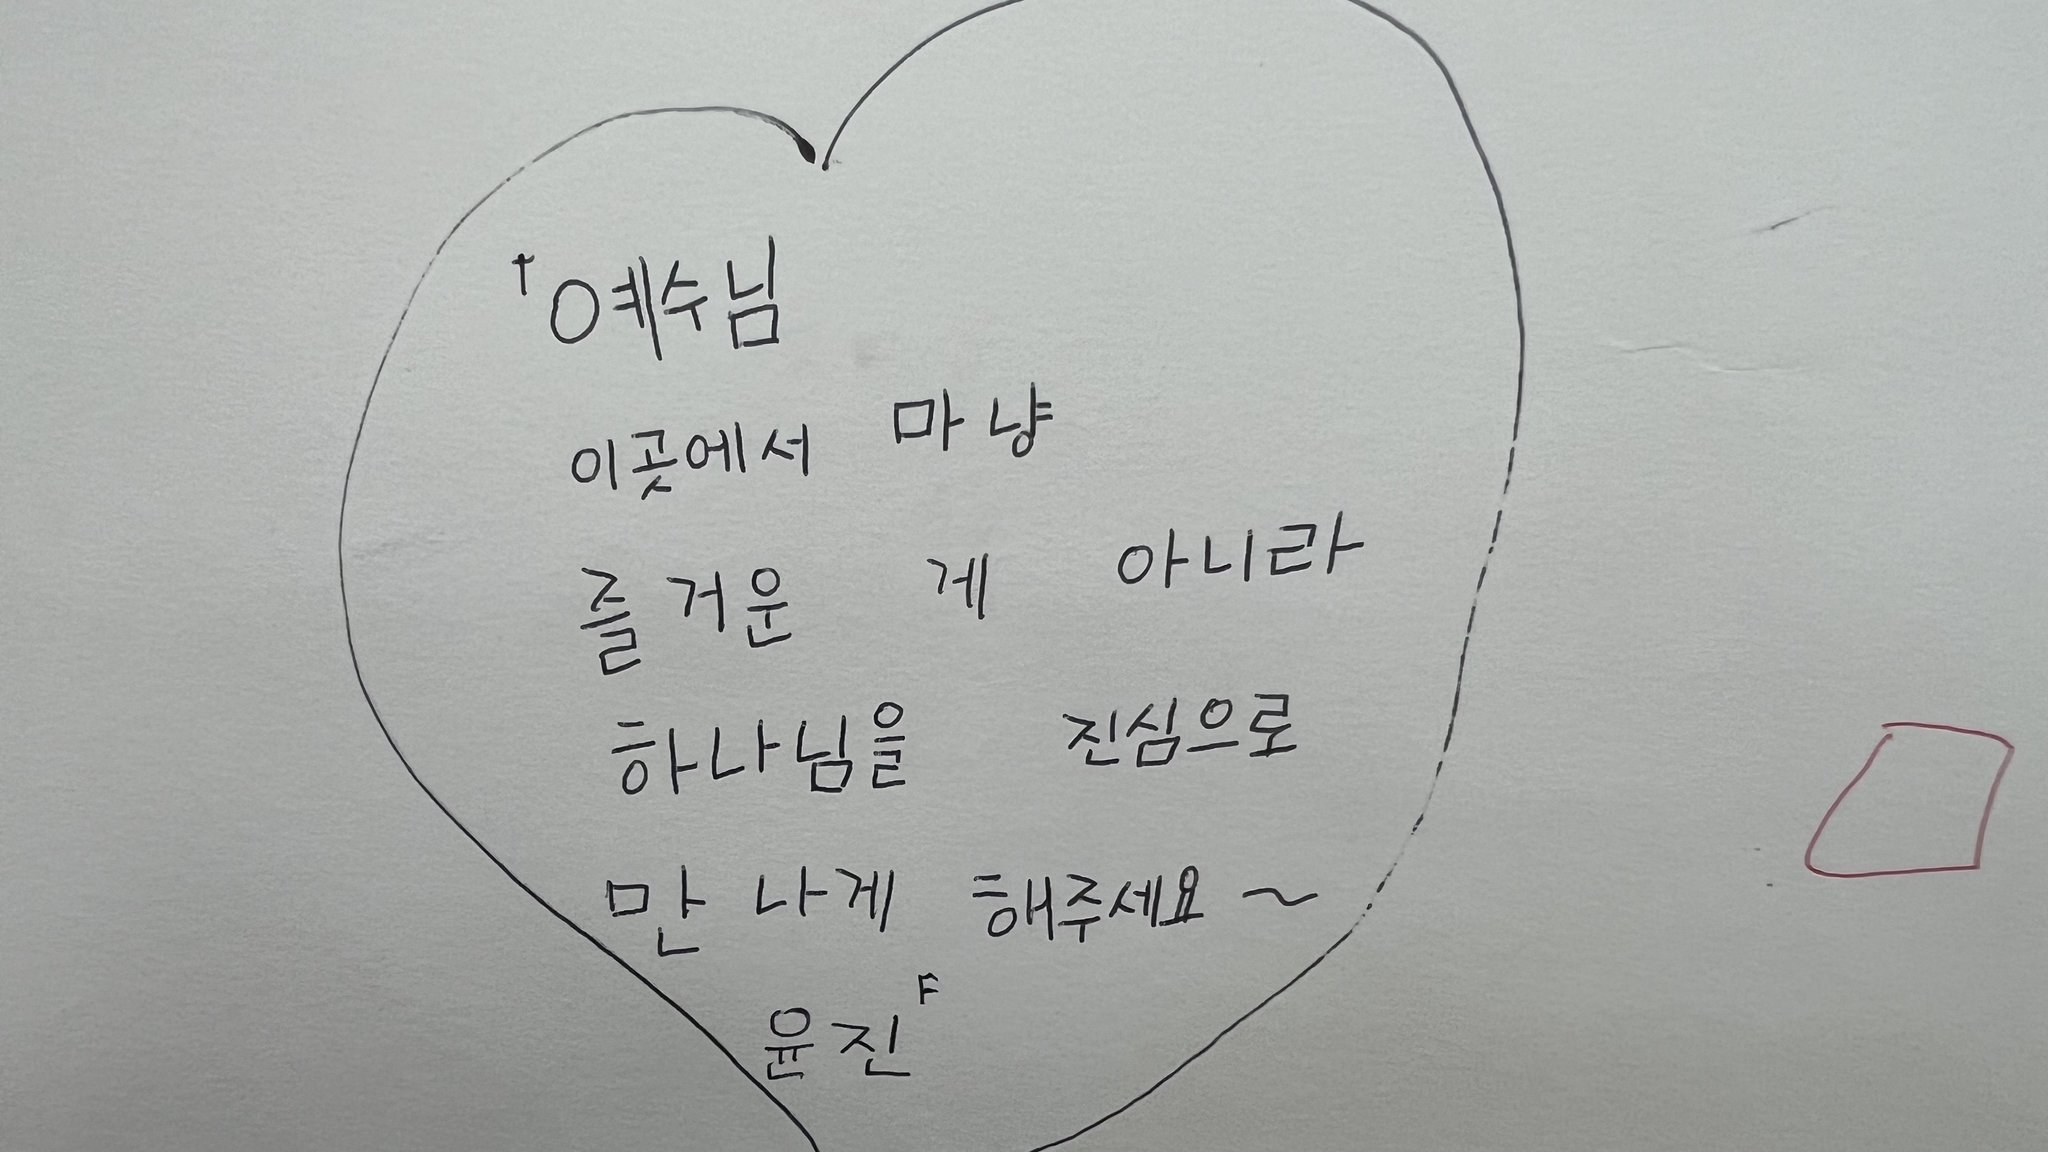 †예수님
이곳에서 마냥
즐거운 게 아니라
하나님을 진심으로
만나게 해주세요~
윤진F